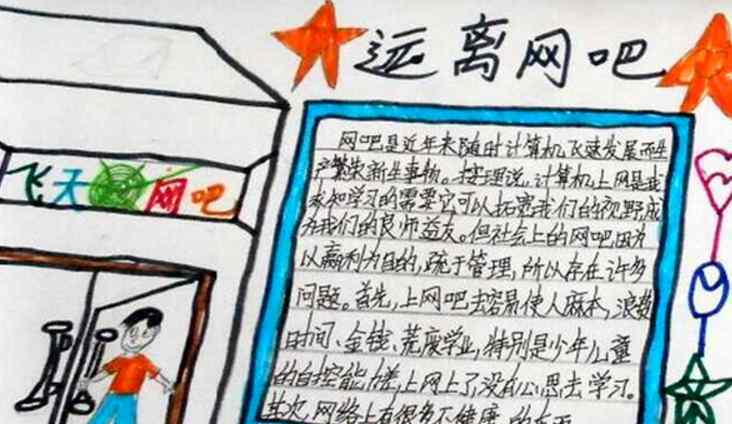 远离网吧
飞天网吧
网吧是近年来随时计算机飞速发展而生
产繁荣新生事物。按理说,计算机上网是我
求知学习的需要它可以拓宽我们的视野,成
为我们的良师益友。但社会上的网吧因为
以赢利为目的,疏于管理,所以存在许多
问题。首先,上网吧去容易使人麻木,浪费
时间、金钱、荒废学业,特别是少年儿童
的自控能差,上网上了没有心思去学习。
其次,网络上有很多不健康的东西